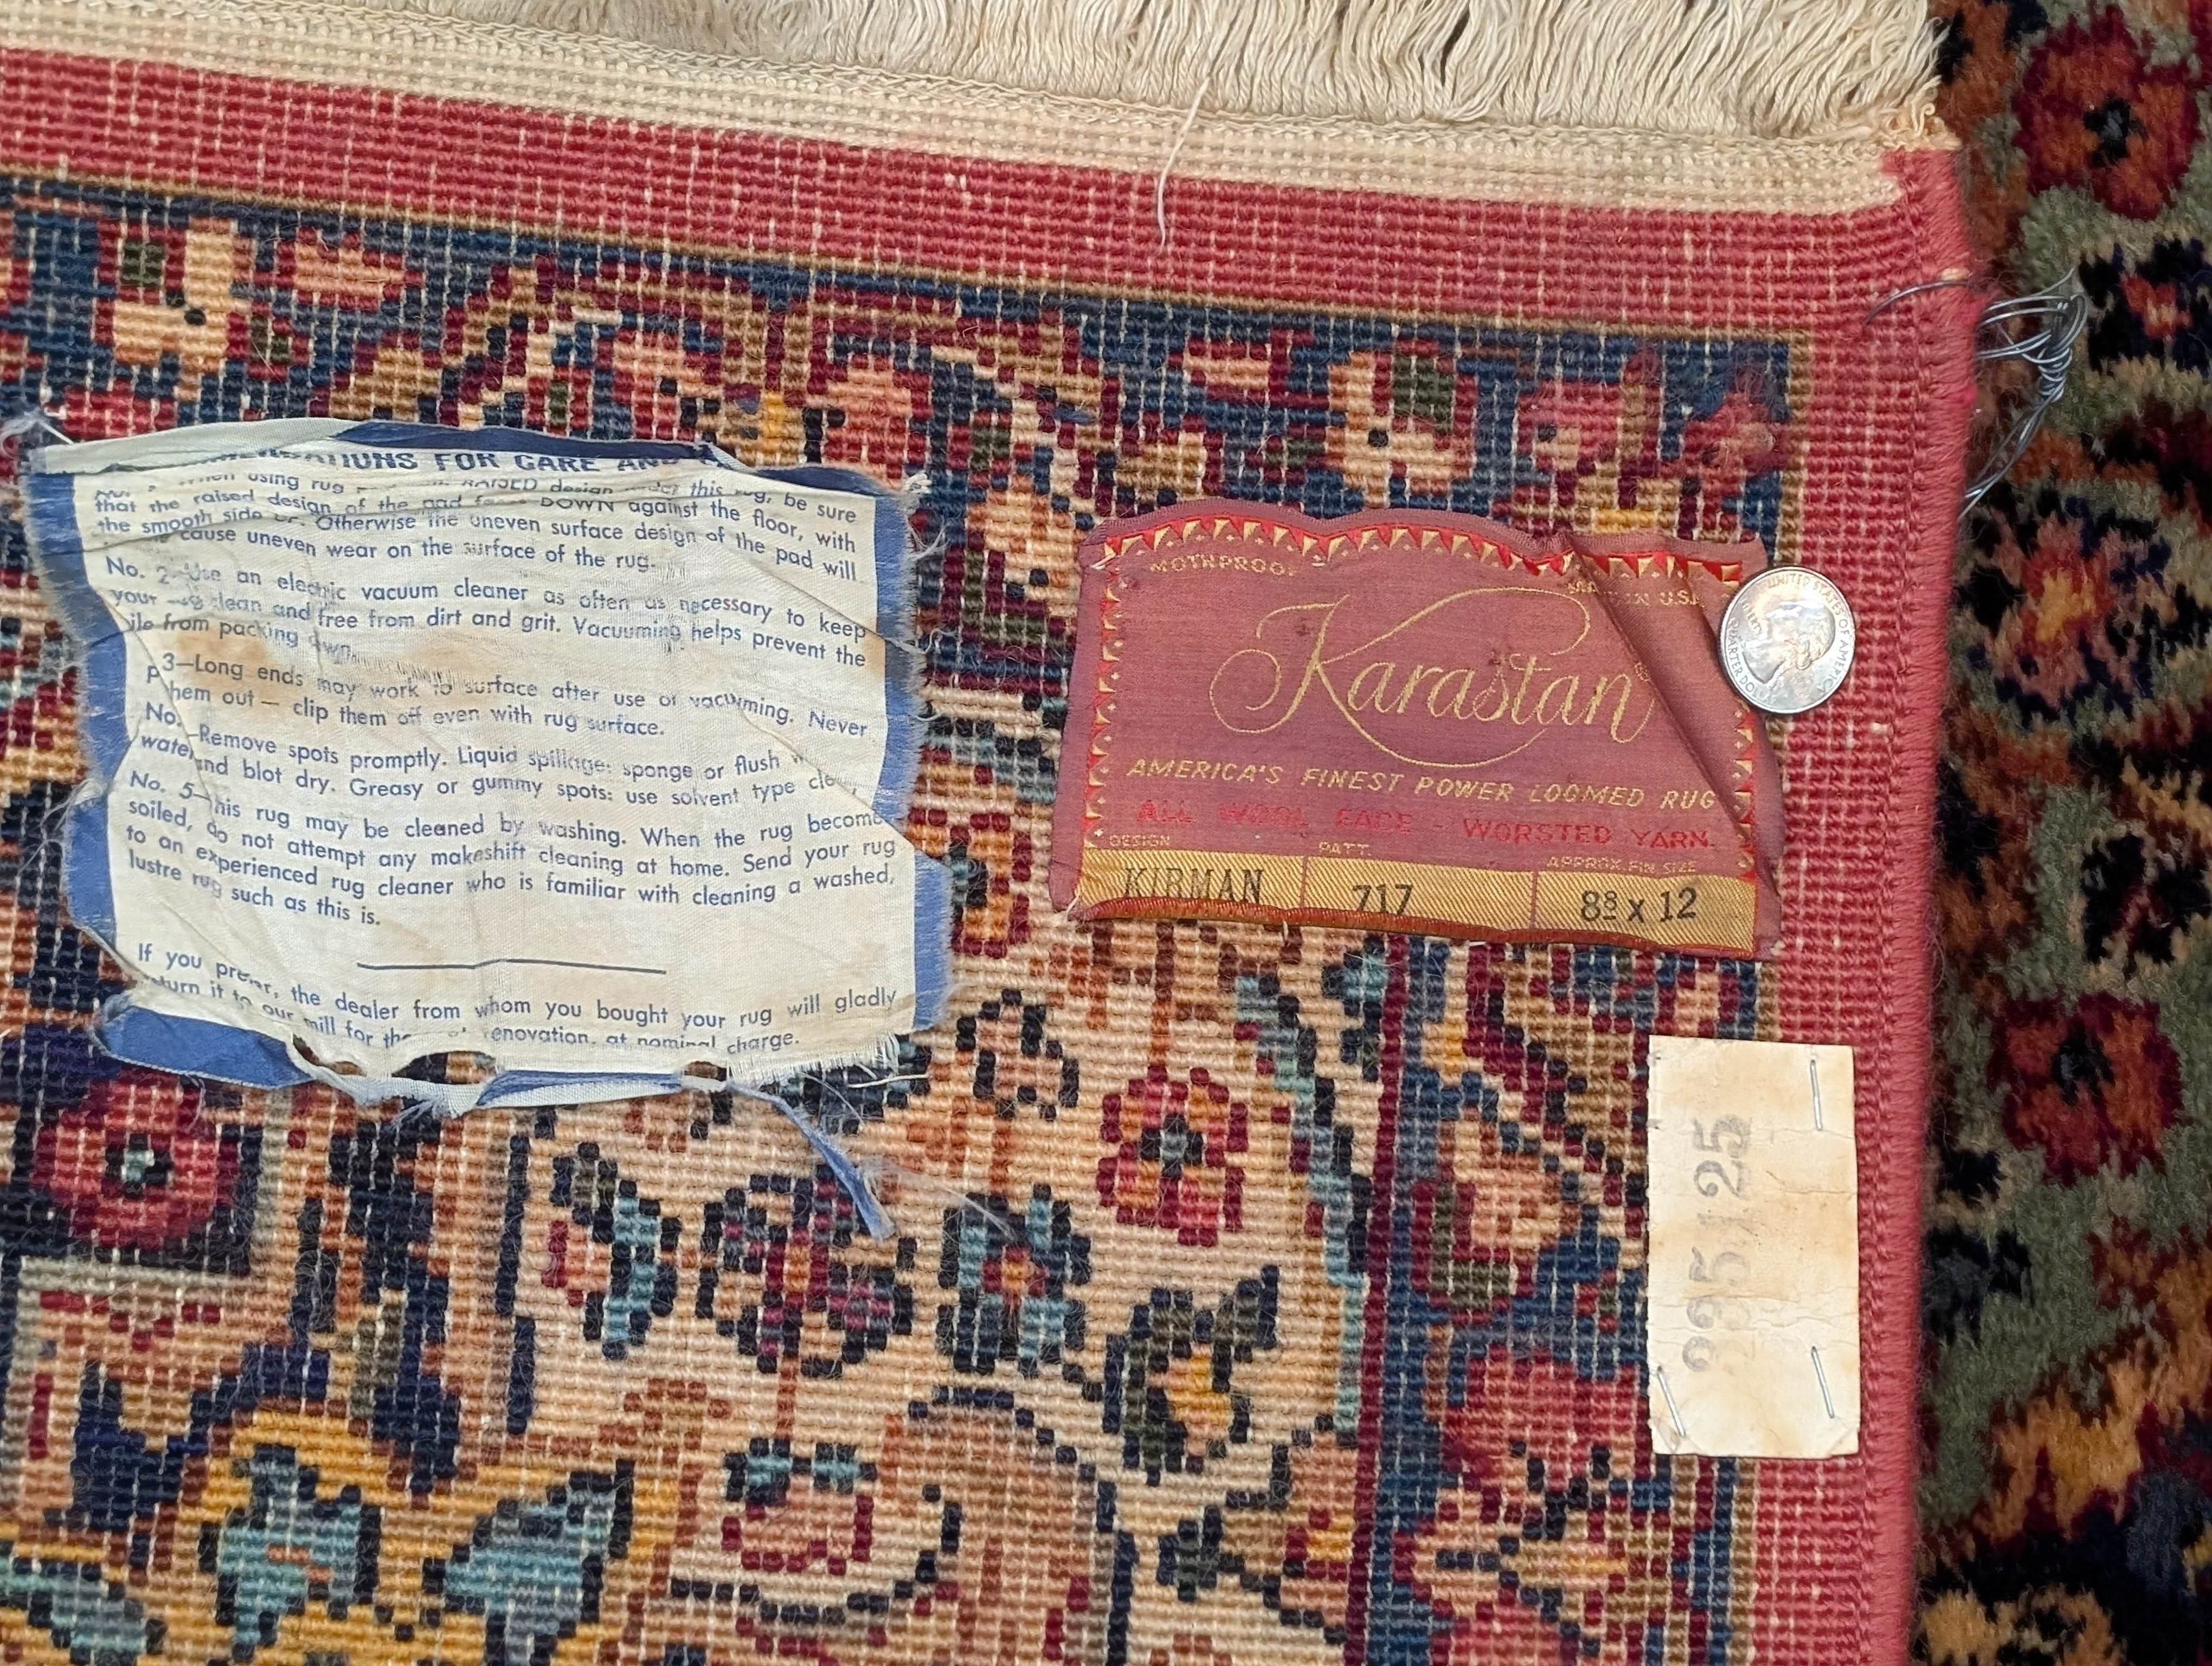 FOR CARE AND
using rug RAISED design this rug, be sure
that the raised design of the pad DOWN against the floor, with
the smooth side Otherwise the uneven surface design of the pad will
cause uneven wear on the surface of the rug.
No. 2—Use an electric vacuum cleaner as often as necessary to keep
your clean and free from dirt and grit. Vacuuming helps prevent the
from packing
3—Long ends may work to surface after use of vacuuming. Never
them out — clip them off even with rug surface.
No. Remove spots promptly. Liquid spillage: sponge or flush
water and blot dry. Greasy or gummy spots: use solvent type
No. 5—This rug may be cleaned by washing. When the rug become
soiled, do not attempt any makeshift cleaning at home. Send your rug
to an experienced rug cleaner who is familiar with cleaning a washed,
lustre rug such as this is.
If you prefer, the dealer from whom you bought your rug will gladly
it to our mill for renovation, at nominal charge.
MOTHPROOF
MADE IN U.S.A.
Karastan®
AMERICA'S FINEST POWER LOOMED RUG
ALL WOOL FACE WORSTED YARN.
DESIGN PATT. APPROX. FIN. SIZE
KIRMAN 717 8⁸ x 12
UNITED STATES OF AMERICA
QUARTER DOLLAR